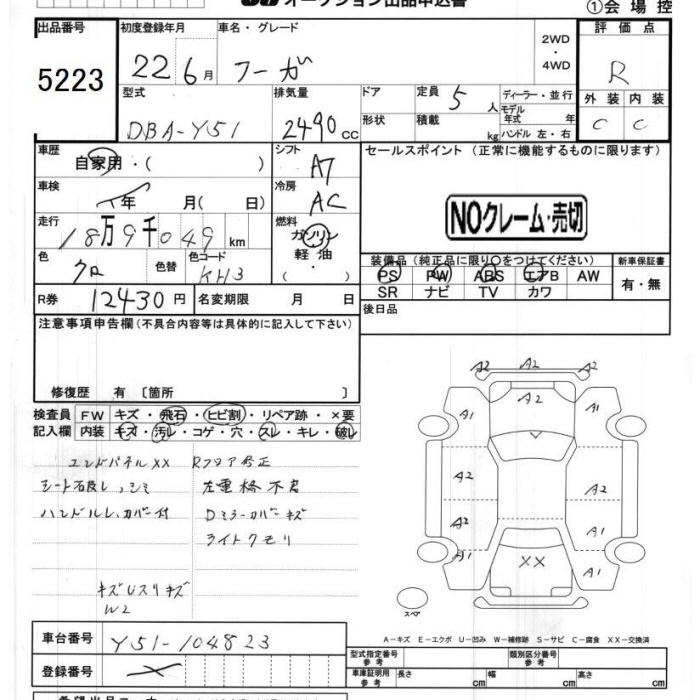 オークション出品申込書
①会場控
出品番号
5223
初度登録年月
22 6月
車名・グレード
フーガ
2WD
・
4WD
評価点
R
外装 内装
C C
型式
DBA-Y51
排気量
2490cc
ドア
形状
定員 5人
積載 kg
ディーラー・並行
モデル
年式 年
ハンドル 左・右
車歴
自家用・( )
シフト
A7
セールスポイント (正常に機能するものに限ります)
車検
年 月( 日)
冷房
AC
NOクレーム・売切
走行
18万9千049km
燃料
ガソリン
軽油・
( )
色
クロ
色替
色コード
KH3
装備品 (純正品に限り○をつけてください)
新車保証書
PS PW ABS エアB AW
SR ナビ TV カワ
有・無
R券 12430円
名変期限 月 日
後日品
注意事項申告欄 (不具合内容等は具体的に記入して下さい)
修復歴 有〔箇所 〕
検査員 FW キズ・飛石・ヒビ割・リペア跡・×要
記入欄 内装 キズ・汚レ・コゲ・穴・スレ・キレ・破レ
エンドパネルXX Rフロア修正
シミ
ハンドルレ、カバー付 Dミラーカバーキズ
ライトクモリ
W2
A2 A2 A2
A2
A1 A1
A2 A2
A2 A2
A1 XX A1
スペア
A-キズ E-エクボ U-凹み W-補修跡 S-サビ C-腐食 XX-交換済
車台番号 Y51-104823
登録番号
型式指定番号
参考
類別区分番号
参考
車庫証明用
参考
長さ cm 幅 cm 高さ cm